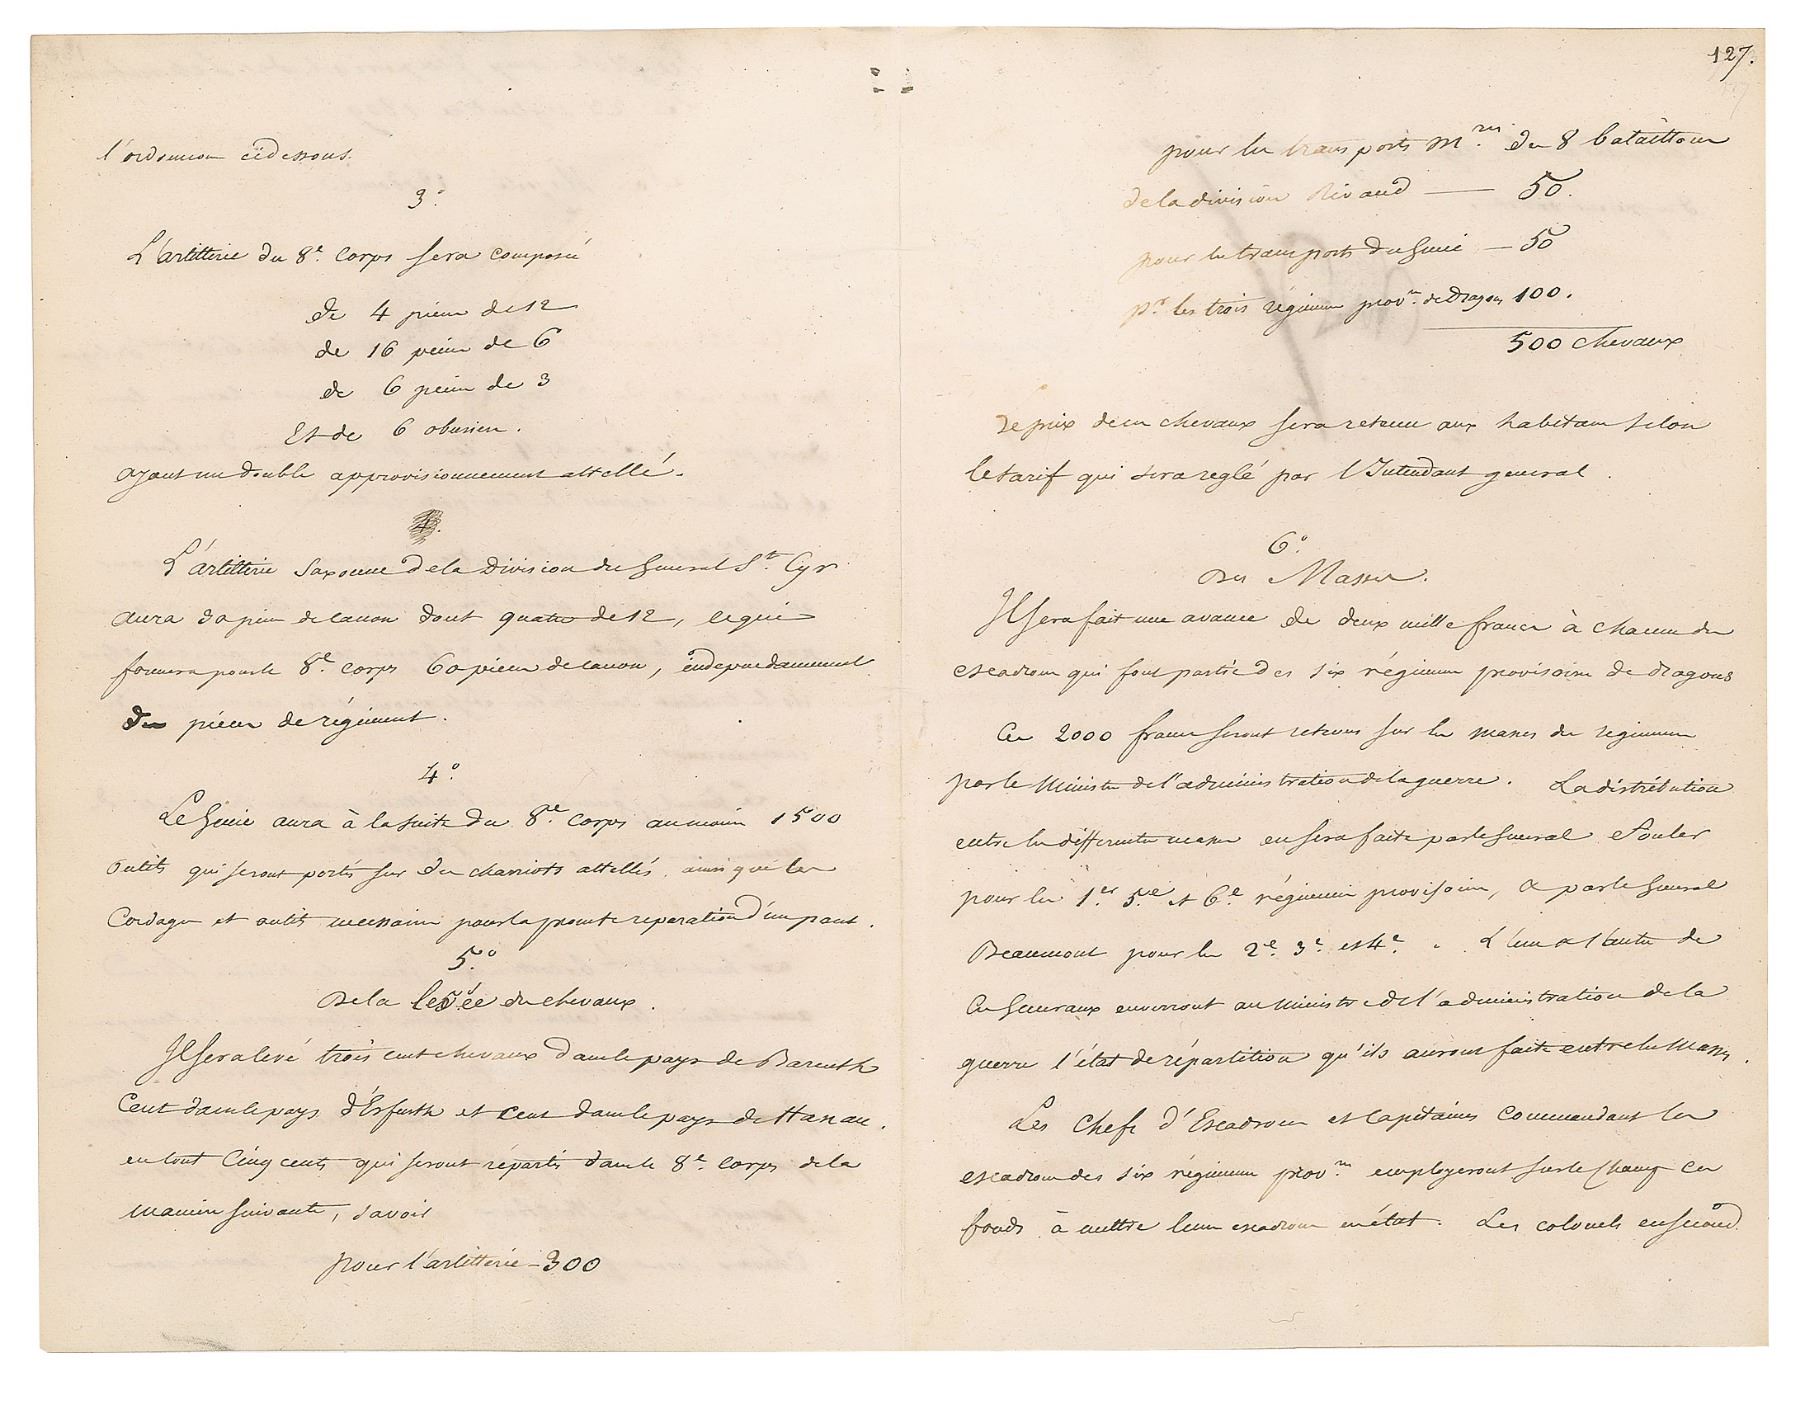 l'ordonnons cïdessous.
3°.
L'artillerie du 8e. Corps sera composée
de 4 pièces de 12
de 16 pièces de 6
de 6 pièces de 3
Et de 6 obusiers.
ayant un double approvisionnement attellé.
L'artillerie Saxonne de la Division du Général St. Cyr
aura 30 pièces de canon dont quatre de 12, ce qui
formera pour le 8e. corps 60 pièces de canon, indépendamment
des pièces de régiment.
4°.
Le Génie aura à la suite du 8e. Corps au moins 1500
outils qui seront portés sur des chariots attellés, ainsi que les
Cordages et outils necessaires pour la prompte reparation d'un pont.
5.°
De la levée des chevaux.
Il sera levé trois cent chevaux dans le pays de Bareuth
Cent dans le pays d'Erfurth et Cent dans le pays de Hanau.
en tout Cinq cents qui seront répartis dans le 8e. Corps de la
manière suivante, savoir
pour l'artillerie - 300
127.
pour les transports Mres. des 8 bataillons
de la division Rivaud — 50.
pour les transports du Génie — 50
pr. les trois régimens provres. de Dragons 100.
500 chevaux
Le prix de ces chevaux sera retenu aux habitans selon
le tarif qui sera reglé par l'Intendant general.
6°.
Des Masses.
Il sera fait une avance de deux mille francs à chacun des
escadrons qui font partie des six régimens provisoires de dragons
Ces 2000 francs seront retenus sur les masses des regimens
par le Ministre de l'administration de la guerre. La distribution
entre les differentes masses en sera faite par le Général
pour les 1er. 5.e et 6e. régimens provisoires, & par le General
Beaumont pour les 2e. 3e. et 4e. L'un & l'autre de
Ces Généraux enverront au Ministre de l'administration de la
guerre l'état de répartition qu'ils auront faite entre les Masses.
Les Chefs d'Escadrons et Capitaines commandant les
escadrons des six régimens provres. employeront sur le Champ ces
fonds à mettre leurs escadrons en état. Les colonels en second